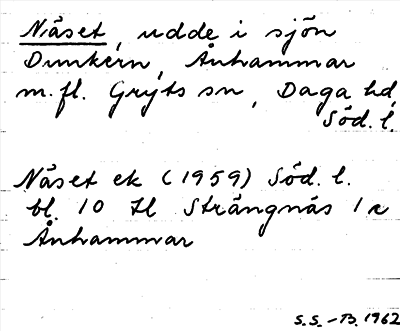 Näset, udde i sjön
Dunkern, Ånhammar
m.fl. Gryts sn, Daga hd,
Söd. l.
Näset ek (1959) Söd. l.
bl. 10 Il Strängnäs 1 x
Ånhammar
S.S. - B. 1962